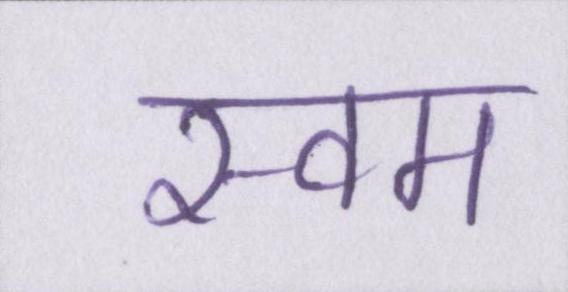 स्वम